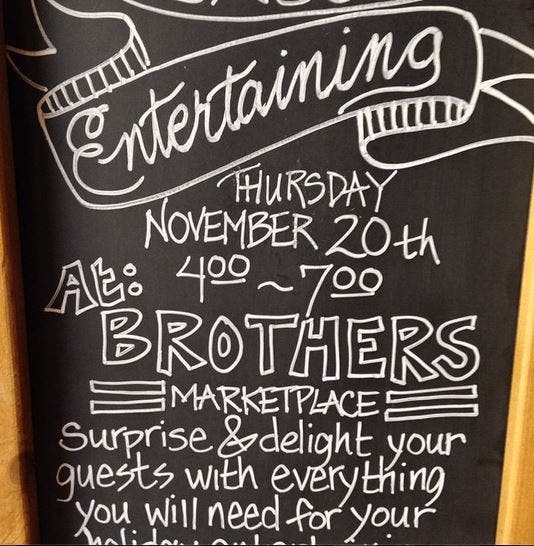 Entertaining
THURSDAY
NOVEMBER 20th
At: 400 ~ 700
BROTHERS
MARKETPLACE
Surprise & delight your
guests with everything
you will need for your
holiday